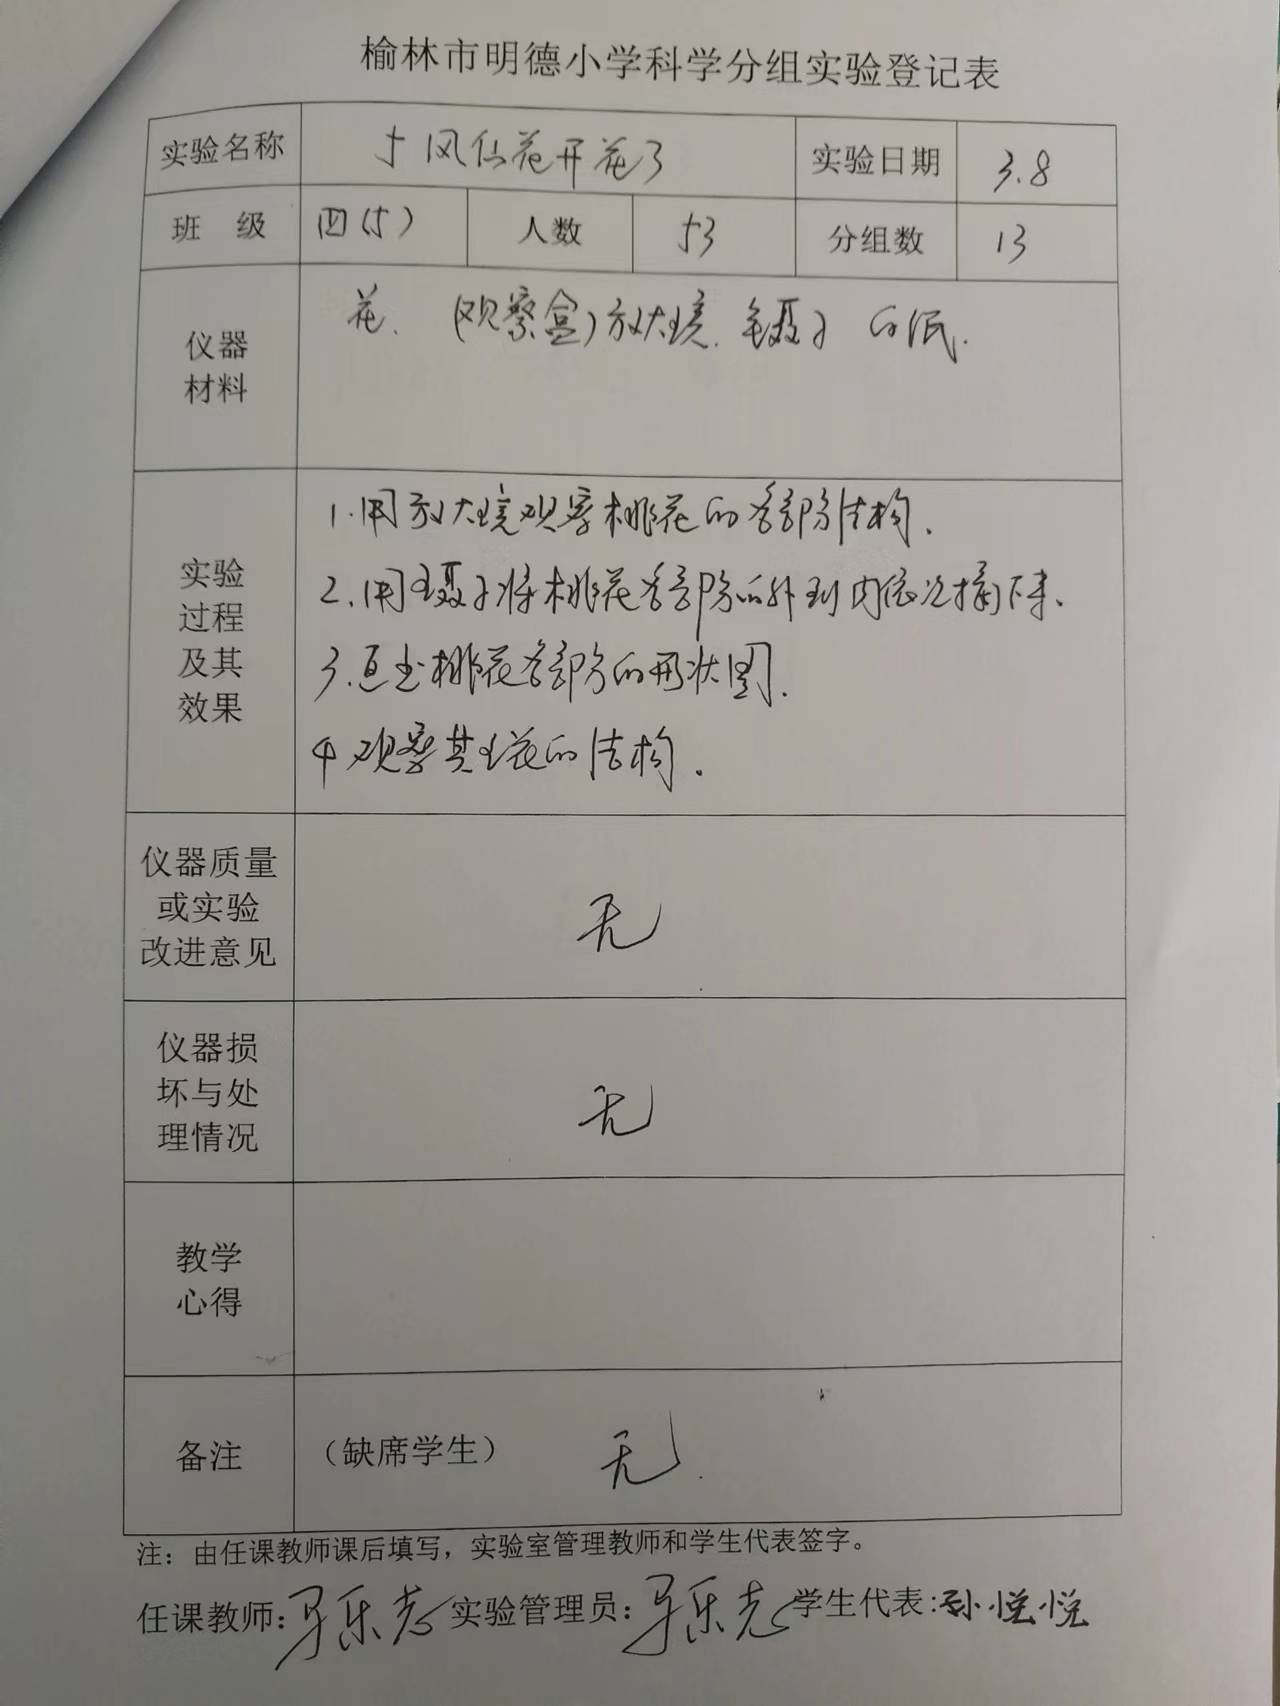 榆林市明德小学科学分组实验登记表
实验名称 5凤仙花开花了 实验日期 3.8
班 级 四(5) 人数 53 分组数 13
仪器
材料
花. (观察盒)放大境. 镊子 白纸.
实验
过程
及其
效果
1.用放大境观察桃花的各部分结构.
2.用镊子将桃花各部分由外到内依次摘下来.
3.画出桃花各部分的形状图.
4 观察其它花的结构.
仪器质量
或实验
改进意见
无
仪器损
坏与处
理情况
无
教学
心得
备注
(缺席学生) 无
注：由任课教师课后填写，实验室管理教师和学生代表签字。
任课教师: 实验管理员: 学生代表:孙悦悦